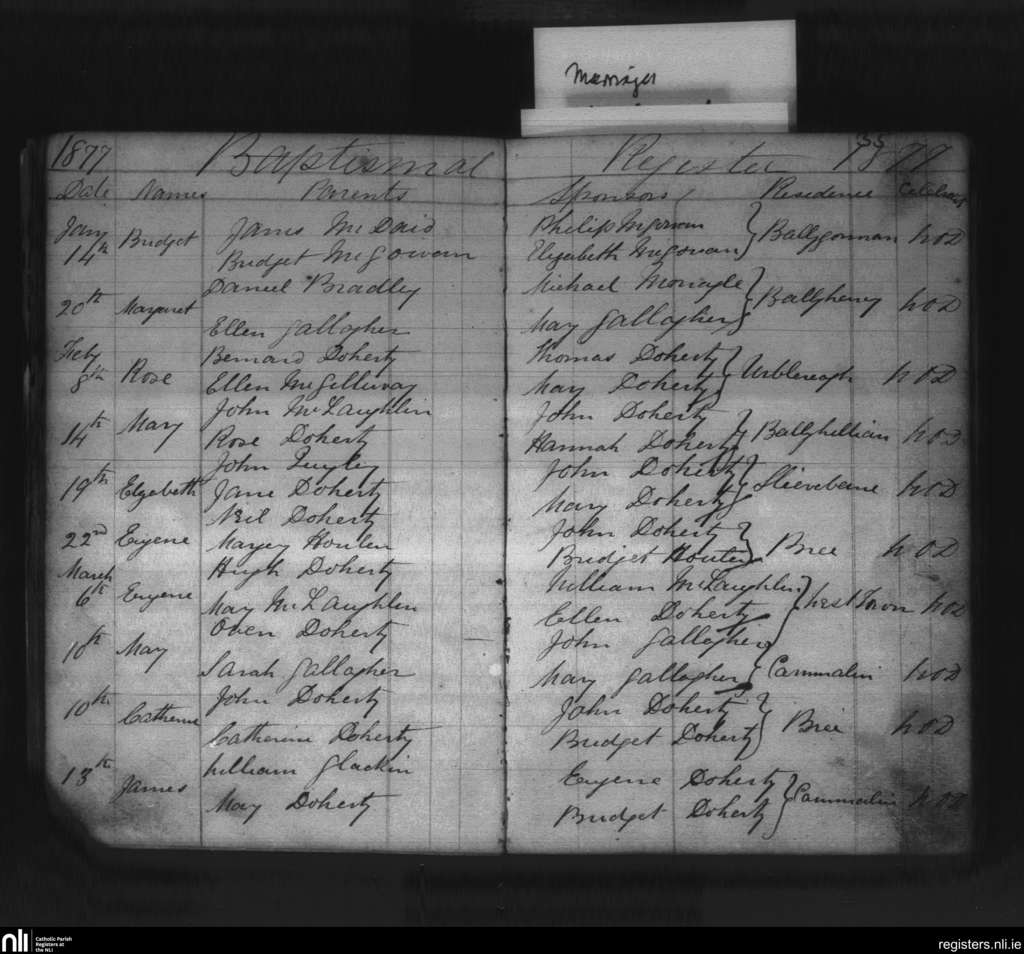 Marriages
1877 Baptismal Register 1877
Date Names Parents Sponsors Residence Celebrant
Jany James McDaid Philip McGowan
14th Bridget Bridget McGowan Elizabeth McGowan Ballygorman W O D
Daniel Bradley Michael Monagle
20th Margaret Ballyhenny W O D
Ellen Gallagher Mary Gallagher
Feby Bernard Doherty Thomas Doherty
8th Rose Ellen McGilluway Mary Doherty Urblereagh W O D
John McLaughlin John Doherty
14th Mary Rose Doherty Hannah Doherty Ballyhillian W O D
John Quigley John Doherty
19th Elizebeth Jane Doherty Mary Doherty Slievebane W O D
Neil Doherty John Doherty
22nd Eugene Margey Houten Bridget Houten Bree W O D
March Hugh Doherty William McLaughlin
6th Eugene Mary McLaughlin Ellen Doherty West Town W O D
Owen Doherty John Gallagher
10th Mary Sarah Gallagher Mary Gallagher Cammalin W O D
10th John Doherty John Doherty
Catherine Catherine Doherty Bridget Doherty Bree W O D
13th William Glackin Eugene Doherty
James Mary Doherty Bridget Doherty Cammalin W O D
nli Catholic Parish
Registers at
the NLI
registers.nli.ie